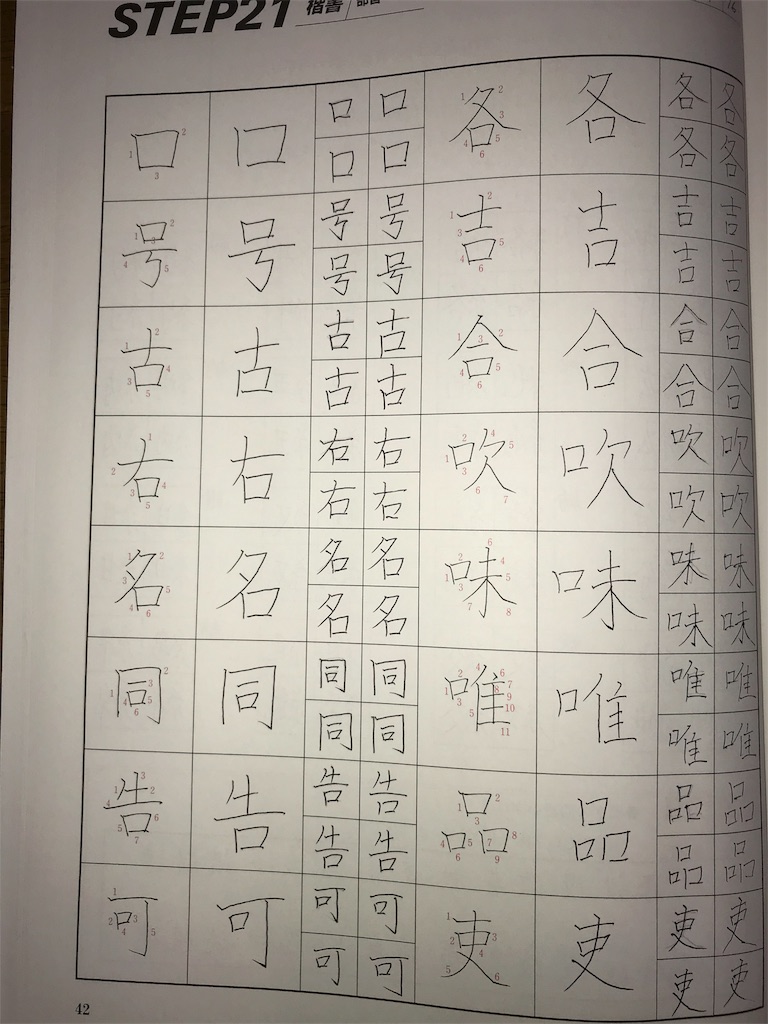 STEP21 楷書
口 口 口 口 各 各 各 各
口 口 各 各
号 号 号 号 吉 吉 吉 吉
号 号 吉 吉
古 古 古 古 合 合 合 合
古 古 合 合
右 右 右 右 吹 吹 吹 吹
右 右 吹 吹
名 名 名 名 味 味 味 味
名 名 味 味
同 同 同 同 唯 唯 唯 唯
同 同 唯 唯
告 告 告 告 品 品 品 品
告 告 品 品
可 可 可 可 吏 吏 吏 吏
可 可 吏 吏
42